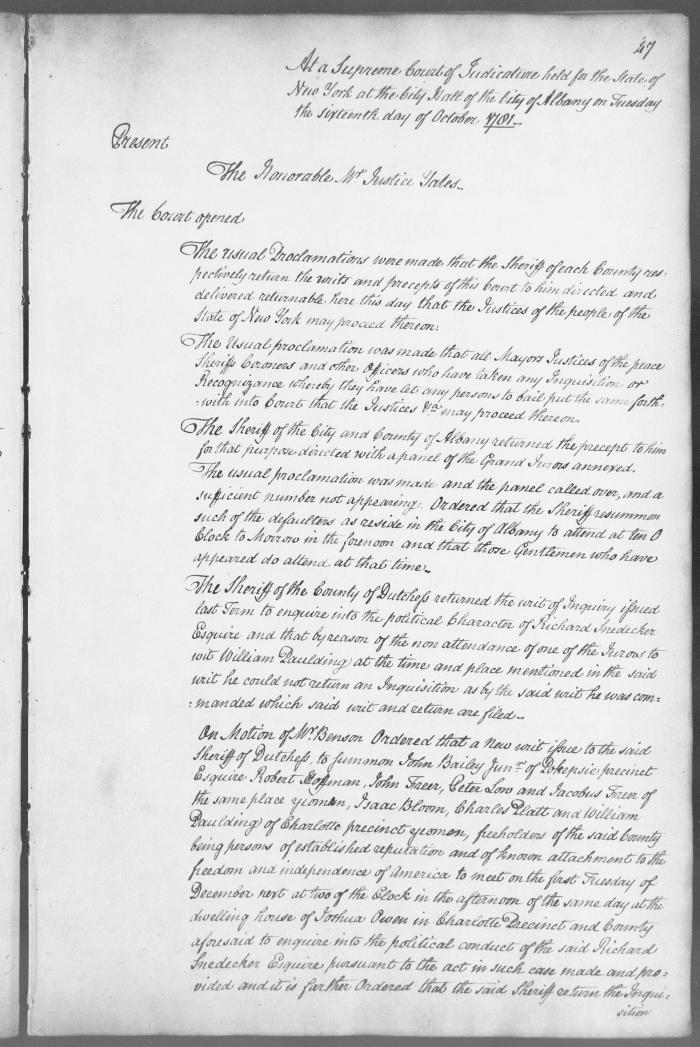 47
At a Supreme Court of Judicature held for the State of
New York at the City Hall of the City of Albany on Tuesday
the sixteenth day of October 1781_
Present
The Honorable Mr Justice Yates_
The Court opened
The usual Proclamations were made that the Sheriff of each County res=
pectively return the writs and precepts of this Court to him directed and
delivered returnable here this day that the Justices of the people of the
State of New York may proceed thereon.
The Usual proclamation was made that all Mayors Justices of the peace
Sheriffs Coroners and other Officers who have taken any Inquisition or
Recognizance whereby they have let any persons to bail put the same forth=
=with into Court that the Justices &ca may proceed thereon.
The Sheriff of the City and County of Albany returned the precept to him
for that purpose directed with a panel of the Grand Jurors annexed.
The usual proclamation was made and the panel called over, and a
sufficient number not appearing. Ordered that the Sheriff resummon
such of the defaulters as reside in the City of Albany to attend at ten O
Clock to Morrow in the forenoon and that those Gentlemen who have
appeared do attend at that time_
The Sheriff of the County of Dutchess returned the writ of Inquiry issued
last Term to enquire into the political Character of Richard Snedecker
Esquire and that by reason of the non attendance of one of the Jurors to
wit William Paulding at the time and place mentioned in the said
writ he could not return an Inquisition as by the said writ he was com=
=manded which said writ and return are filed_
On Motion of Mr Benson Ordered that a new writ issue to the said
Sheriff of Dutchess, to summon John Bailey Junr of Pokepsie precinct
Esquire Robert Hoffman, John Freer, Peter Low and Jacobus Freer of
the same place yeomen, Isaac Bloom, Charles Platt and William
Paulding of Charlotte precinct yeomen, freeholders of the said County
being persons of established reputation and of known attachment to the
freedom and independence of America to meet on the first Tuesday of
December next at two of the Clock in the afternoon of the same day at the
dwelling house of Joshua Owen in Charlotte Precinct and County
aforesaid to enquire into the political conduct of the said Richard
Snedecker Esquire pursuant to the act in such case made and pro=
vided and it is farther Ordered that the said Sheriff return the Inqui=
sition